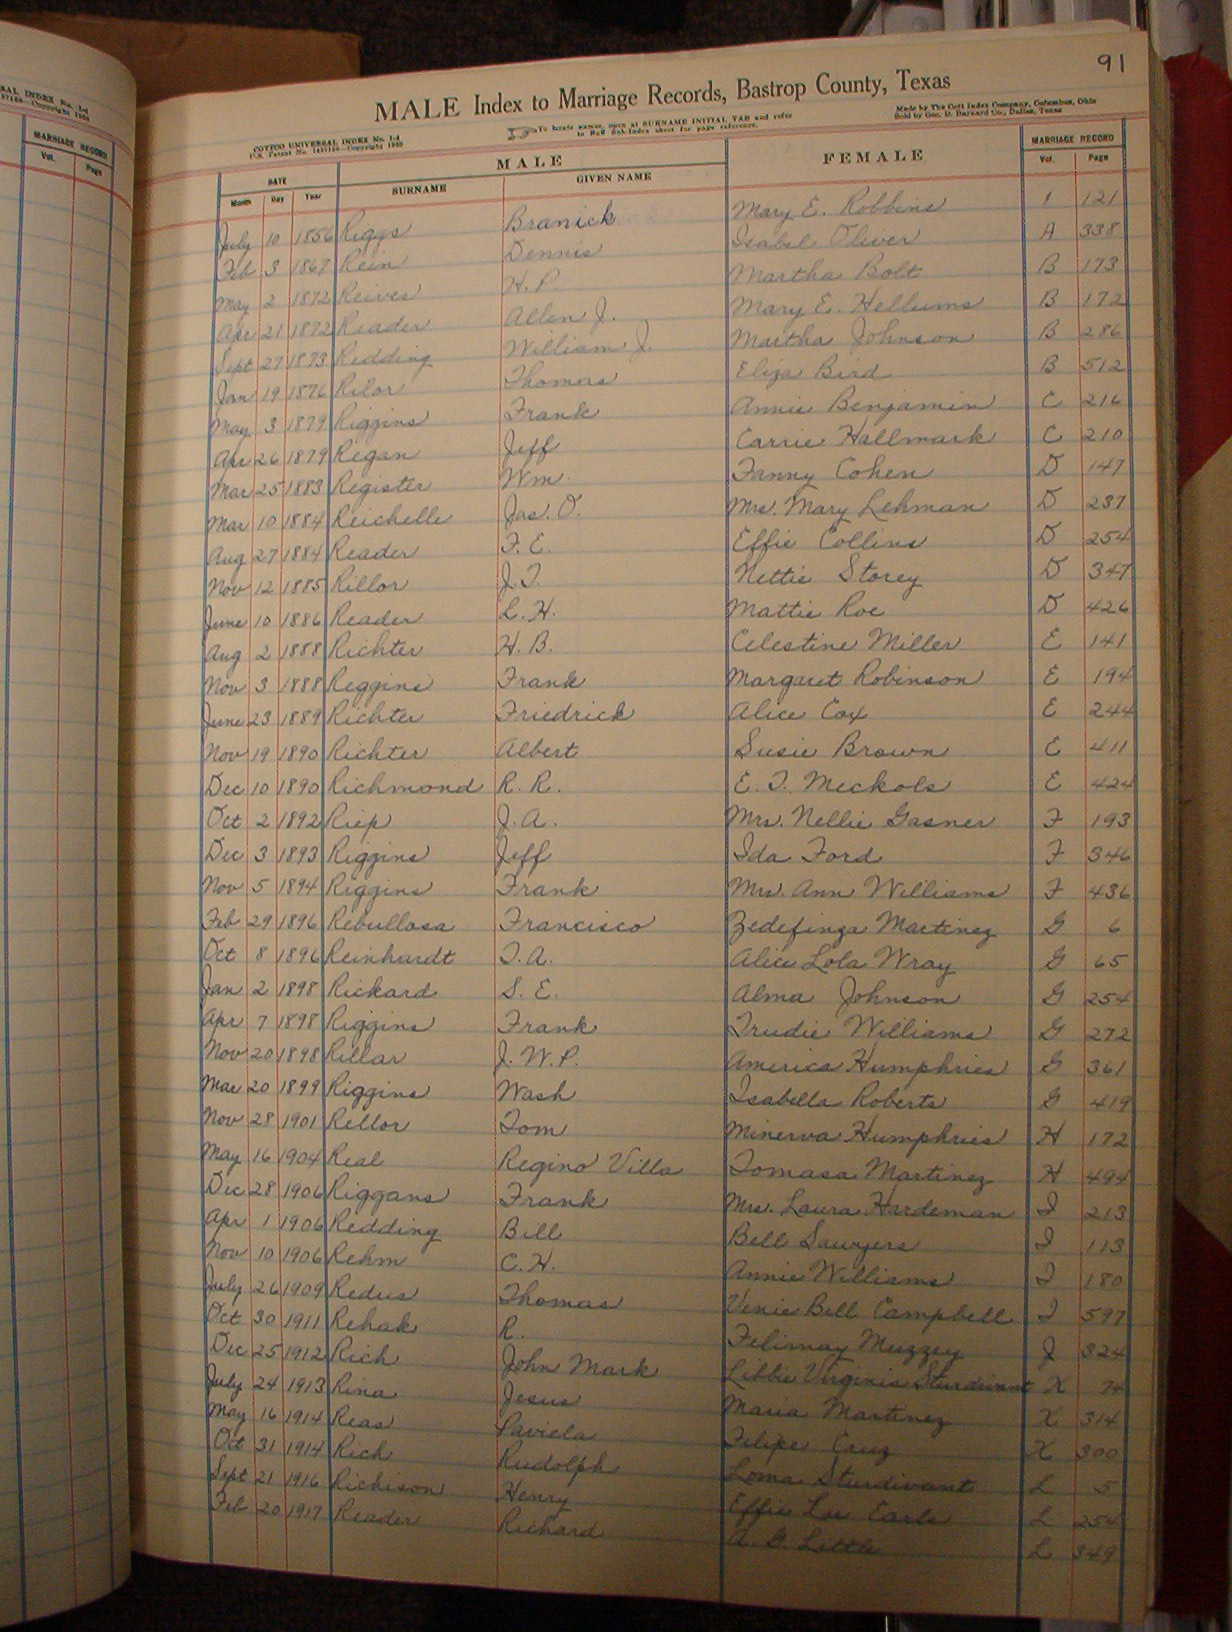 91
MALE Index to Marriage Records, Bastrop County, Texas
COTTCO UNIVERSAL INDEX No. I-4
To locate names, open at SURNAME INITIAL TAB and refer
to Buff Sub-Index sheet for page reference.
Made by The Cott Index Company, Columbus, Ohio
Sold by Geo. D. Barnard Co., Dallas, Texas
DATE MALE FEMALE MARRIAGE RECORD
Month Day Year SURNAME GIVEN NAME Vol. Page
July 10 1856 Riggs Branick Mary E. Robbins 1 121
Feb 3 1867 Rein Dennis Isabel Oliver A 338
May 2 1872 Reives H.P. Martha Bolt B 173
Apr 21 1872 Reader Allen J. Mary E. Hellums B 172
Sept 27 1873 Redding William J. Martha Johnson B 286
Jan 19 1876 Rilor Thomas Eliza Bird B 512
May 3 1879 Riggins Frank Annie Benjamin C 216
Apr 26 1879 Regan Jeff Carrie Hallmark C 210
Mar 25 1883 Register Wm. Fanny Cohen D 147
Mar 10 1884 Reichelle Jas. O. Mrs. Mary Lehman D 237
Aug 27 1884 Reader F. E. Effie Collins D 254
Nov 12 1885 Rillor J.T. Nettie Storey D 347
June 10 1886 Reader L. H. Mattie Roe D 426
Aug 2 1888 Richter H. B. Celestine Miller E 141
Nov 3 1888 Reggins Frank Margaret Robinson E 194
June 23 1889 Richter Friedrick Alice Cox E 244
Nov 19 1890 Richter Albert Susie Brown E 411
Dec 10 1890 Richmond R. R. E. T. Meckols E 424
Oct 2 1892 Riep J. A. Mrs. Nellie Gasner F 193
Dec 3 1893 Riggins Jeff Ida Ford F 346
Nov 5 1894 Riggins Frank Mrs. Ann Williams F 436
Feb 29 1896 Rebullosa Francisco Zedefinga Martinez G 6
Oct 8 1896 Reinhardt T. A. Alice Lola Wray G 65
Jan 2 1898 Rickard S. E. Alma Johnson G 254
Apr 7 1898 Riggins Frank Trudie Williams G 272
Nov 20 1898 Rillar J. W. P. America Humphries G 361
Mar 20 1899 Riggins Wash Isabella Roberts G 419
Nov 28 1901 Rellor Tom Minerva Humphries H 172
May 16 1904 Real Regino Villa Tomasa Martinez H 494
Dec 28 1906 Riggans Frank Mrs. Laura Hardeman I 213
Apr 1 1906 Redding Bill Bell Sawyers I 113
Nov 10 1906 Rehm C. H. Annie Williams I 180
July 26 1909 Redus Thomas Venie Bell Campbell I 597
Oct 30 1911 Rehak R. Felimay Muzzey J 324
Dec 25 1912 Rich John Mark Libbie Virginia Sturdivant K 74
July 24 1913 Rina Jesus Maria Martinez K 314
May 16 1914 Reas Paviela Felipe Cruz K 300
Oct 31 1914 Rich Rudolph Loma Sturdivant L 5
Sept 21 1916 Richison Henry Effie Lee Earls L 254
Feb 20 1917 Reader Richard A. G. Little L 349
MARRIAGE RECORD
Vol. Page